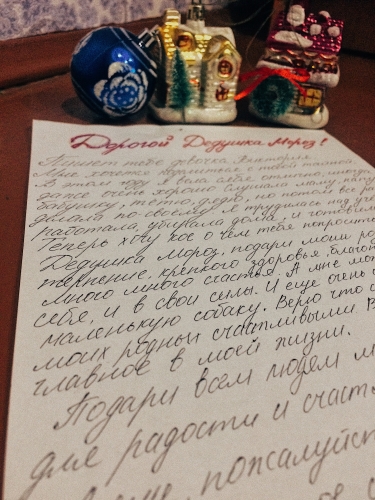 Дорогой Дедушка Мороз!
Пишет тебе девочка Виктория.
Мне хочется поделиться с тобой
В этом году я вела себя отлично, иногда
даже очень хорошо слушала маму, папу,
бабушку, тётю, дядю, но потом все
делала по-своему. Я трудилась над
работала, убирала дома, и готовила
Теперь хочу кое о чём тебя попросить
Дедушка Мороз, подари моим
терпение, крепкого здоровья,
много много счастья. А мне
себя, и в свои силы. И ещё очень
маленькую собаку. Верю что
моих родных счастливыми.
главное в моей жизни.
Подари всем людям
для радости и
пожалуйст